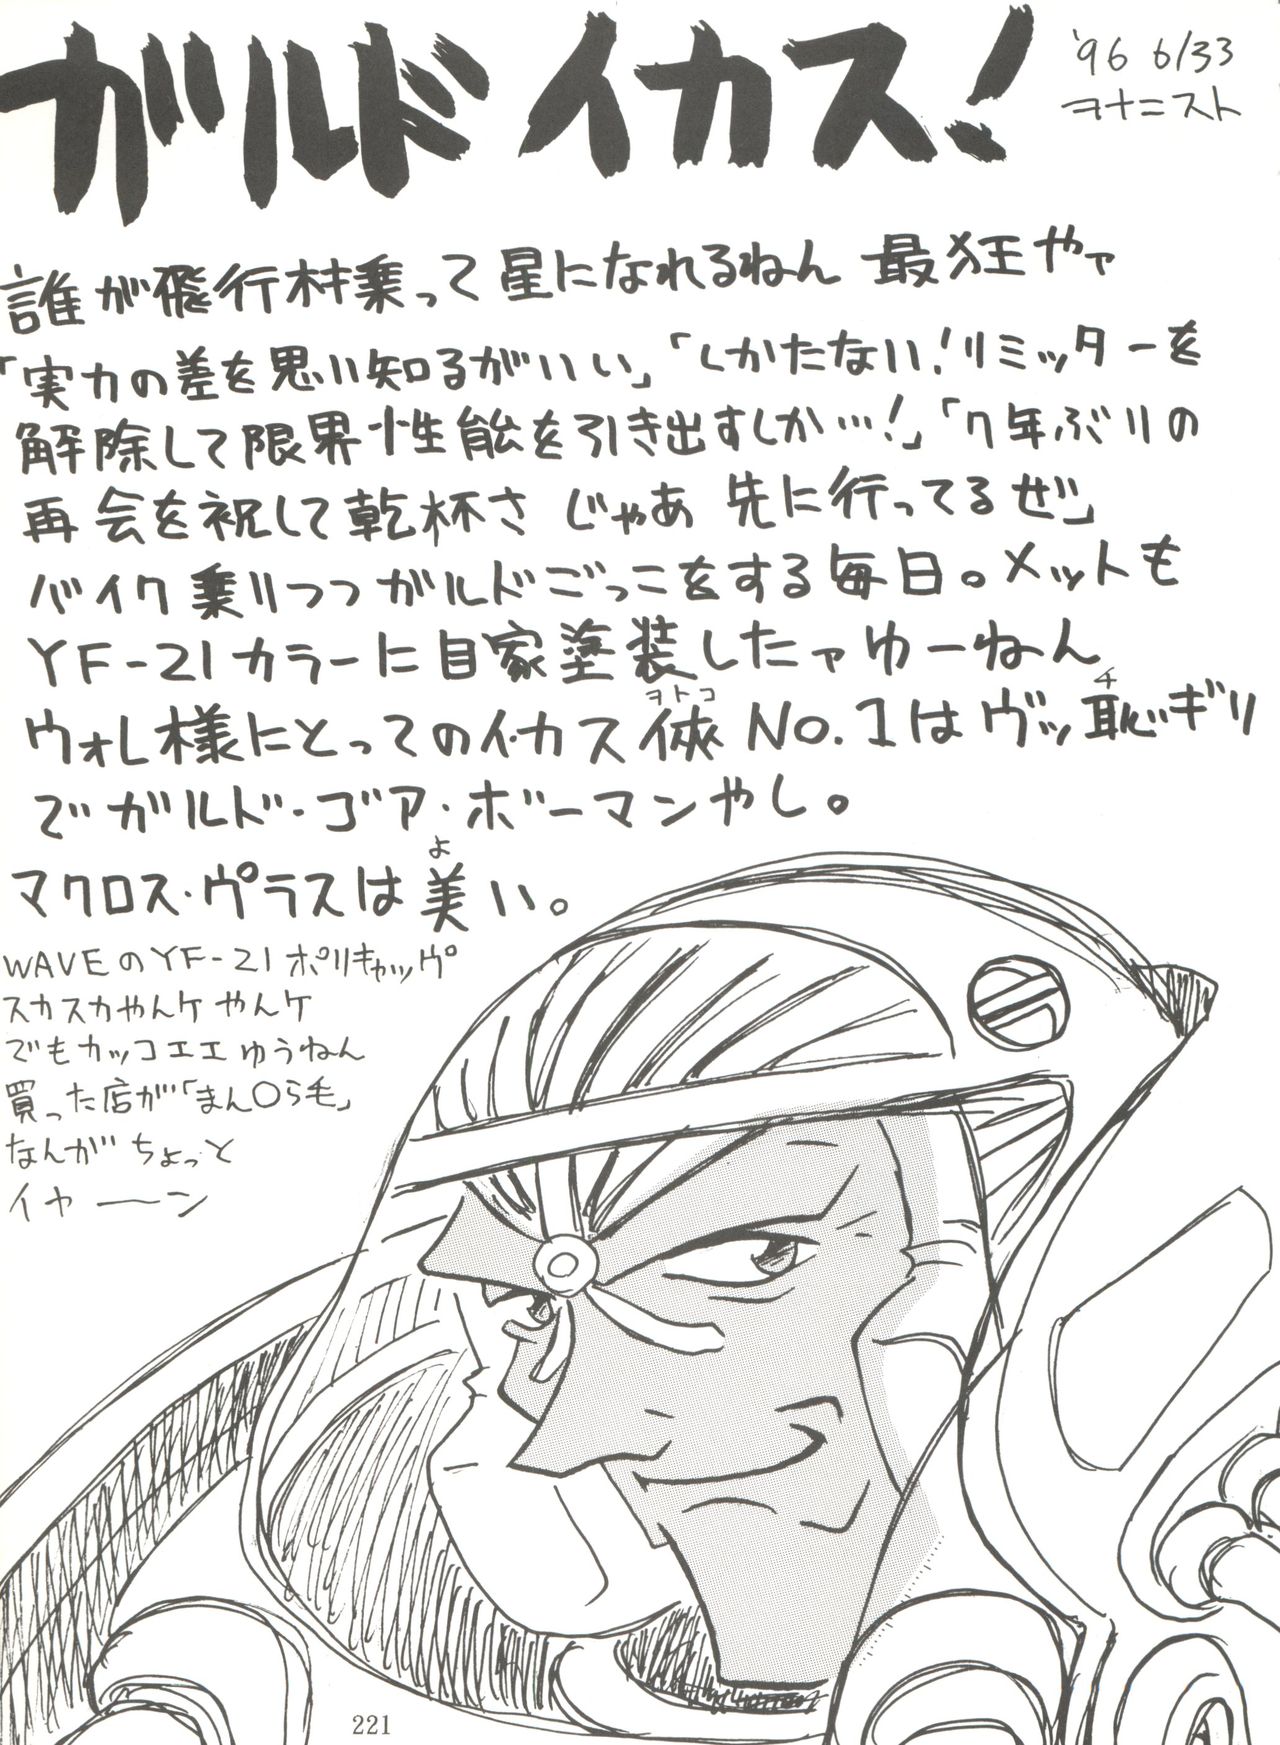 ガルドイカス!
'96 6/33
ヲナニスト
誰が飛行材乗って星になれるねん 最狂やァ
「実力の差を思い知るがいい」「しかたない!リミッターを
解除して限界性能を引き出すしか…!」「7年ぶりの
再会を祝して乾杯さ じゃあ 先に行ってるぜ」
バイク乗りつつガルドごっこをする毎日。メットも
YF-21カラーに自家塗装したャゆーねん
ヲトコ チ
ウォレ様にとってのイカス俠 No.1はヴッ恥ギリ
でガルド・ゴア・ボーマンやし。
よ
マクロス・プラスは美い。
WAVEのYF-21ポリキャップ
スカスカやんケ やんケ
でもカッコエエゆうねん
買った店が「まん〇ら毛」
なんがちょっと
イヤーン
221